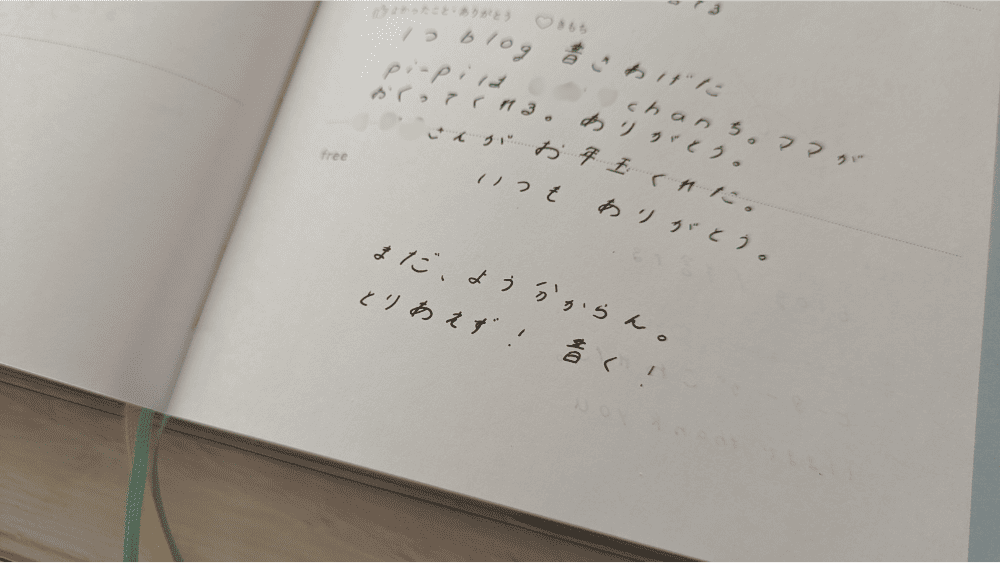 よかったこと・ありがとう きもち
1つ blog 書きあげた
pi-piは chanち。ママが
おくってくれる。ありがとう。
さんが お年玉くれた。
free
いつも ありがとう。
まだ、よう分からん。
とりあえず！ 書く！